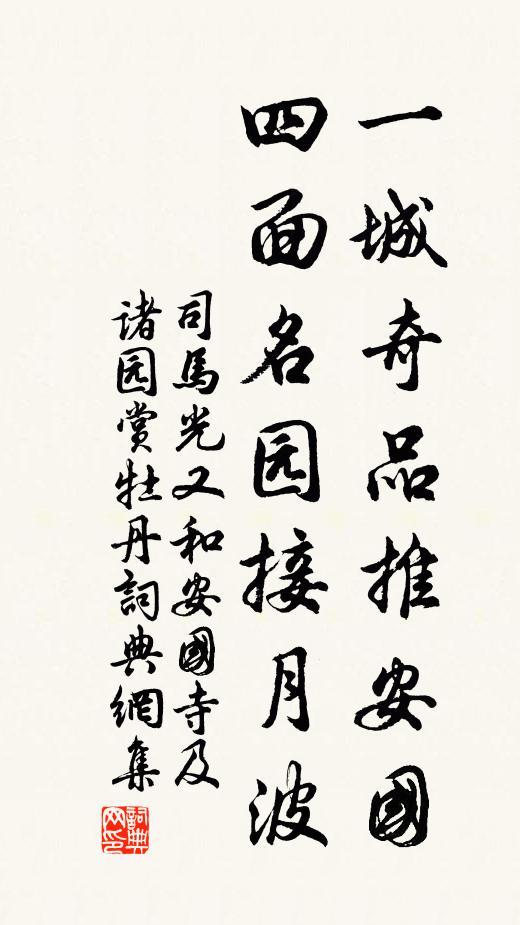 一城奇品推安國
四面名园接月波
司馬光又和安國寺及
诸园赏牡丹詞典網集
詞典网印